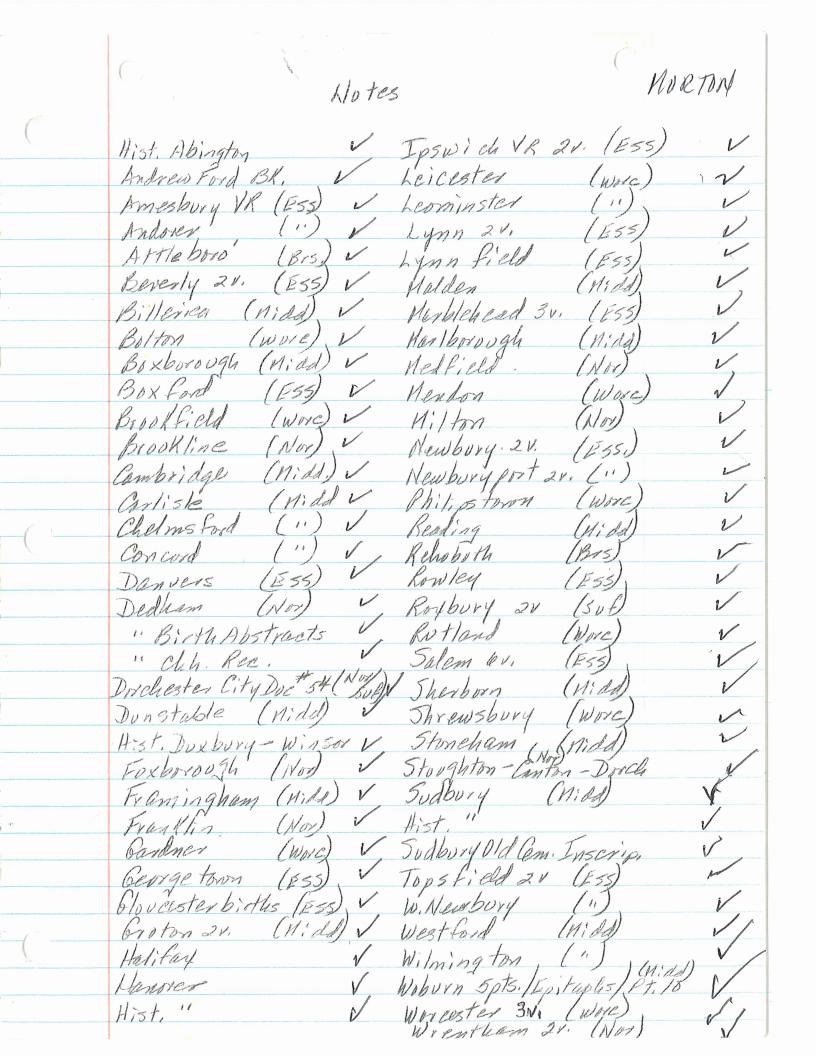 Notes
MORTON
Hist. Abington ✓
Andrew Ford BK. ✓
Amesbury VR (Ess) ✓
Andover (") ✓
Attleboro' (Brs.) ✓
Beverly 2v. (Ess) ✓
Billerica (Midd) ✓
Bolton (Worc) ✓
Boxborough (Midd) ✓
Boxford (Ess) ✓
Brookfield (Worc) ✓
Brookline (Nor) ✓
Cambridge (Midd.) ✓
Carlisle (Midd ✓
Chelmsford (") ✓
Concord (") ✓
Danvers (Ess) ✓
Dedham (Nor) ✓
" Birth Abstracts ✓
" Chh. Rec. ✓
Dorchester City Doc # 54 (Nor/Suf) ✓
Dunstable (Midd) ✓
Hist. Duxbury - Winsor ✓
Foxborough (Nor) ✓
Framingham (Midd) ✓
Franklin (Nor) ✓
Gardner (Worc) ✓
Georgetown (Ess) ✓
Gloucester births (Ess) ✓
Groton 2v. (Midd) ✓
Halifax ✓
Hanover ✓
Hist. " ✓
Ipswich VR 2v. (Ess) ✓
Leicester (Worc) ✓
Leominster (") ✓
Lynn 2v. (Ess) ✓
Lynnfield (Ess) ✓
Malden (Midd) ✓
Marblehead 3v. (Ess) ✓
Marlborough (Midd) ✓
Medfield (Nor) ✓
Mendon (Worc) ✓
Milton (Nor) ✓
Newbury 2v. (Ess.) ✓
Newburyport 2v. (") ✓
Philipstown (Worc) ✓
Reading (Midd) ✓
Rehoboth (Brs) ✓
Rowley (Ess) ✓
Roxbury 2v (Suf) ✓
Rutland (Worc) ✓
Salem 6v. (Ess) ✓
Sherborn (Midd) ✓
Shrewsbury (Worc) ✓
Stoneham (Midd) ✓
Stoughton-Canton-Dorch (Nor) ✓
Sudbury (Midd) ✓
Hist. " ✓
Sudbury Old Cem. Inscrip. ✓
Topsfield 2v (Ess) ✓
W. Newbury (") ✓
Westford (Midd) ✓
Wilmington (") ✓
Woburn 5pts./Epitaphs/Pt. 10 (Midd) ✓
Worcester 3v. (Worc) ✓
Wrentham 2v. (Nor) ✓